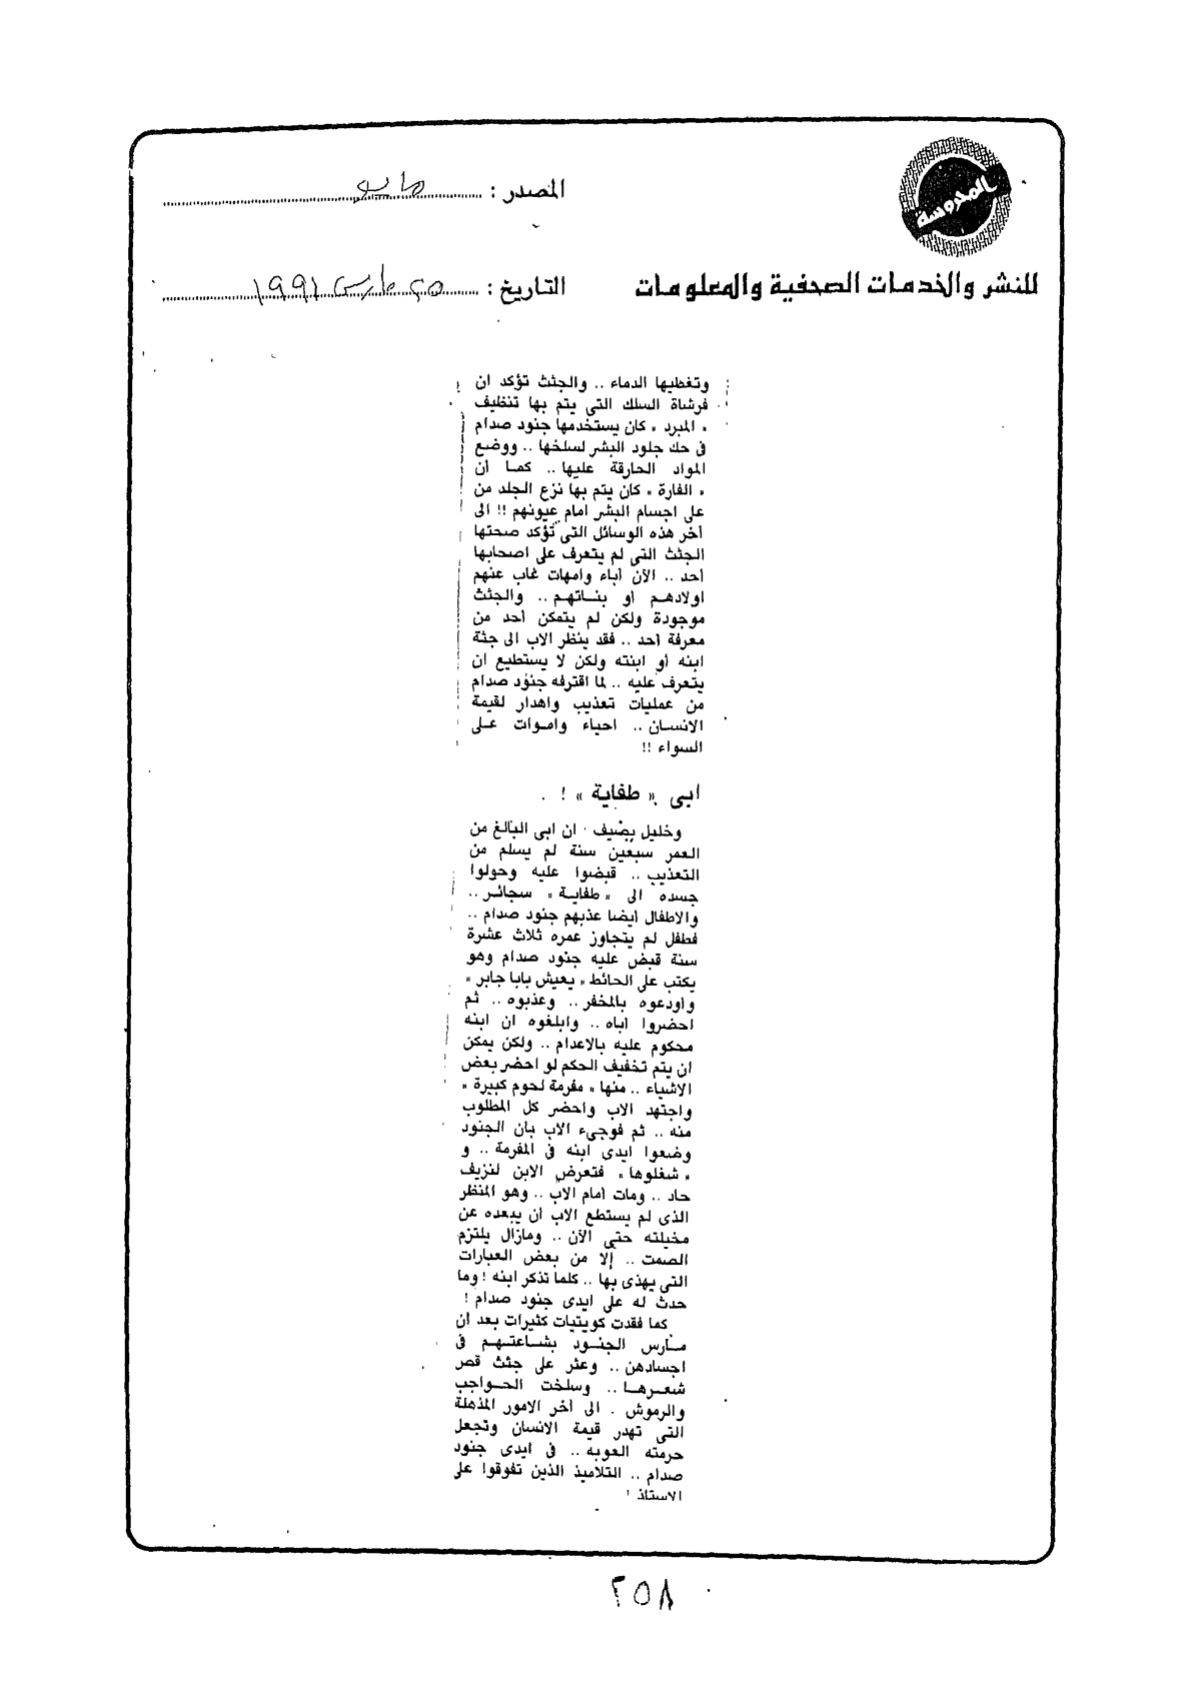 المحروسة
للنشر والخدمات الصحفية والمعلومات
المصدر : مايو
التاريخ : ٢٥ مارس ١٩٩١
وتغطيها الدماء .. والجثث تؤكد ان
فرشاة السلك التى يتم بها تنظيف
« المبرد » كان يستخدمها جنود صدام
فى حك جلود البشر لسلخها .. ووضع
المواد الحارقة عليها .. كما أن
« الفارة » كان يتم بها نزع الجلد من
على اجسام البشر امام عيونهم !! الى
آخر هذه الوسائل التى تؤكد صحتها
الجثث التى لم يتعرف على اصحابها
أحد .. الآن أباء وامهات غاب عنهم
اولادهم او بناتهم .. والجثث
موجودة ولكن لم يتمكن أحد من
معرفة أحد .. فقد ينظر الاب الى جثة
ابنه أو ابنته ولكن لا يستطيع ان
يتعرف عليه .. لما اقترفه جنود صدام
من عمليات تعذيب واهدار لقيمة
الانسان .. احياء واموات على
السواء !!
ابى « طفاية » !
وخليل يضيف : ان ابى البالغ من
العمر سبعين سنة لم يسلم من
التعذيب .. قبضوا عليه وحولوا
جسده الى « طفاية » سجائر ..
والاطفال ايضا عذبهم جنود صدام ..
فطفل لم يتجاوز عمره ثلاث عشرة
سنة قبض عليه جنود صدام وهو
يكتب على الحائط « يعيش بابا جابر »
واودعوه بالمخفر .. وعذبوه .. ثم
احضروا اباه .. وابلغوه ان ابنه
محكوم عليه بالاعدام .. ولكن يمكن
ان يتم تخفيف الحكم لو احضر بعض
الاشياء .. منها « مفرمة لحوم كبيرة »
واجتهد الاب واحضر كل المطلوب
منه .. ثم فوجىء الاب بان الجنود
وضعوا ايدى ابنه فى المفرمة .. و
« شغلوها » فتعرض الابن لنزيف
حاد .. ومات أمام الأب .. وهو المنظر
الذى لم يستطع الاب أن يبعده عن
مخيلته حتى الآن .. ومازال يلتزم
الصمت .. إلا من بعض العبارات
التى يهذى بها .. كلما تذكر ابنه ! وما
حدث له على ايدى جنود صدام !
كما فقدت كويتيات كثيرات بعد ان
مارس الجنود بشاعتهم فى
اجسادهن .. وعثر على جثث قص
شعرها .. وسلخت الحواجب
والرموش . الى آخر الامور المذهلة
التى تهدر قيمة الانسان وتجعل
حرمته العوبه .. فى ايدى جنود
صدام .. التلاميذ الذين تفوقوا على
الاستاذ !
٢٥٨